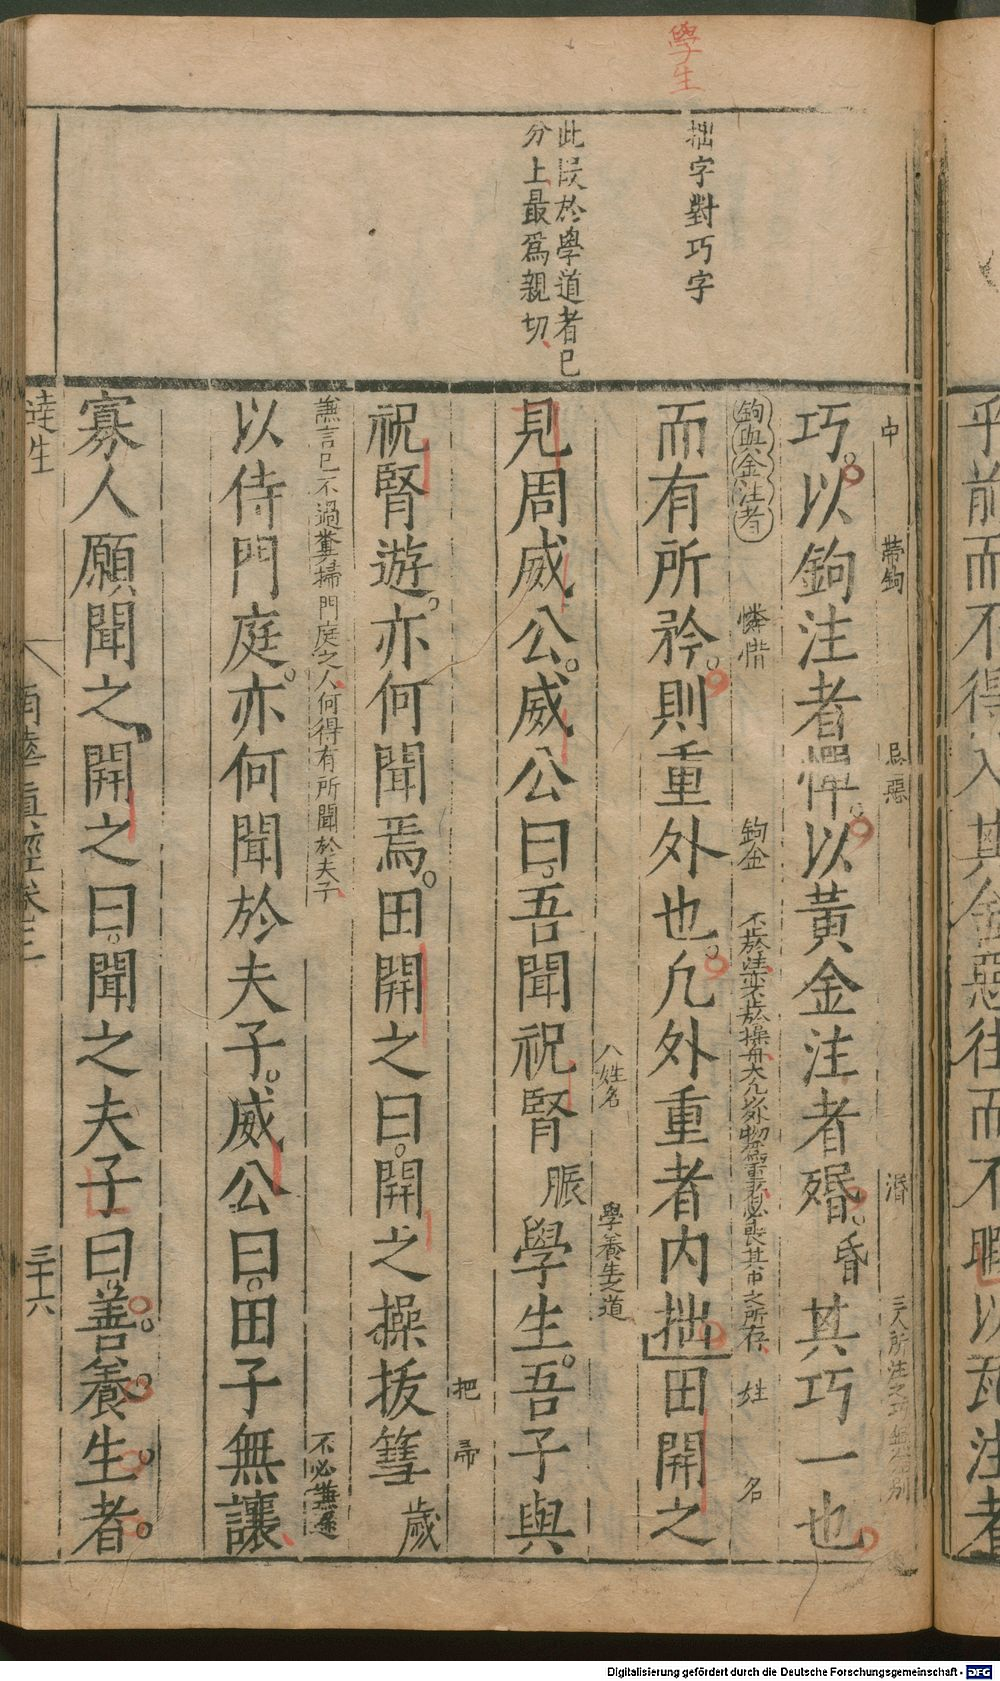 學生
拙字對巧字
此段於學道者已
分上最爲親切
乎前而不得入其舍惡往而不暇以瓦注者
中
帶鉤
忌惡
涽
三人所注之巧無分別
巧以鉤注者憚以黃金注者殙昏其巧一也
鉤與金注者
憐惜
鉤金
姓
名
而有所矜則重外也凡外重者內拙田開之
人姓名
學養生之道
見周威公威公曰吾聞祝腎脤學生吾子與
把
帚
祝腎遊亦何聞焉田開之曰開之操拔篲歲
謙言己不過糞掃門庭之人何得有所聞於夫子
不必謙遜
以侍門庭亦何聞於夫子威公曰田子無讓
寡人願聞之開之曰聞之夫子曰善養生者
達生
南華眞經卷三
三十六
Digitalisierung gefördert durch die Deutsche Forschungsgemeinschaft - DFG